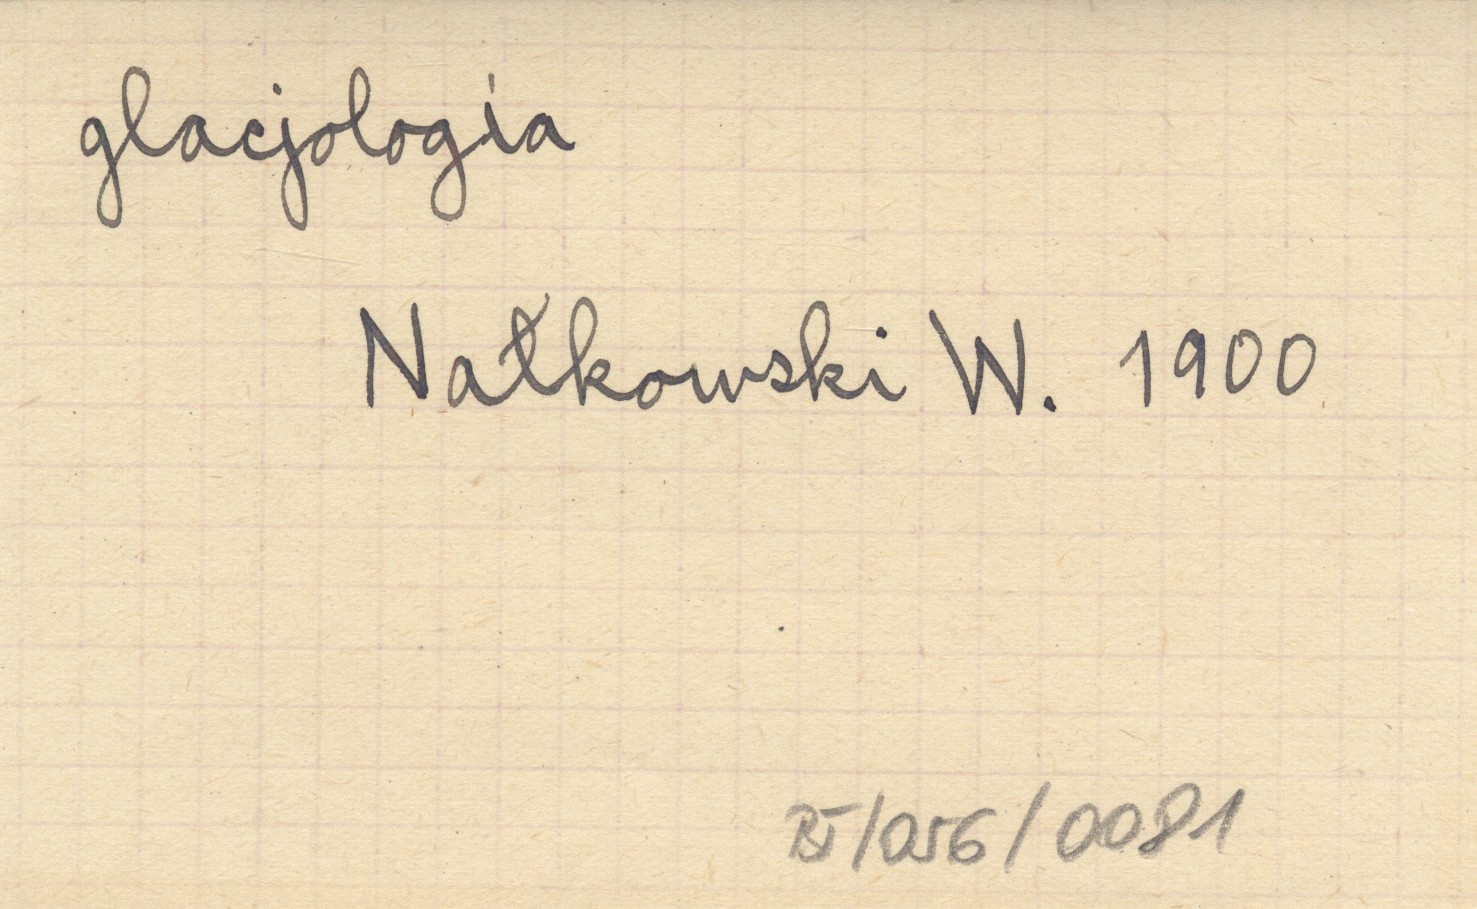 glacjologia
Nałkowski W. 1900
BJ/056/0081